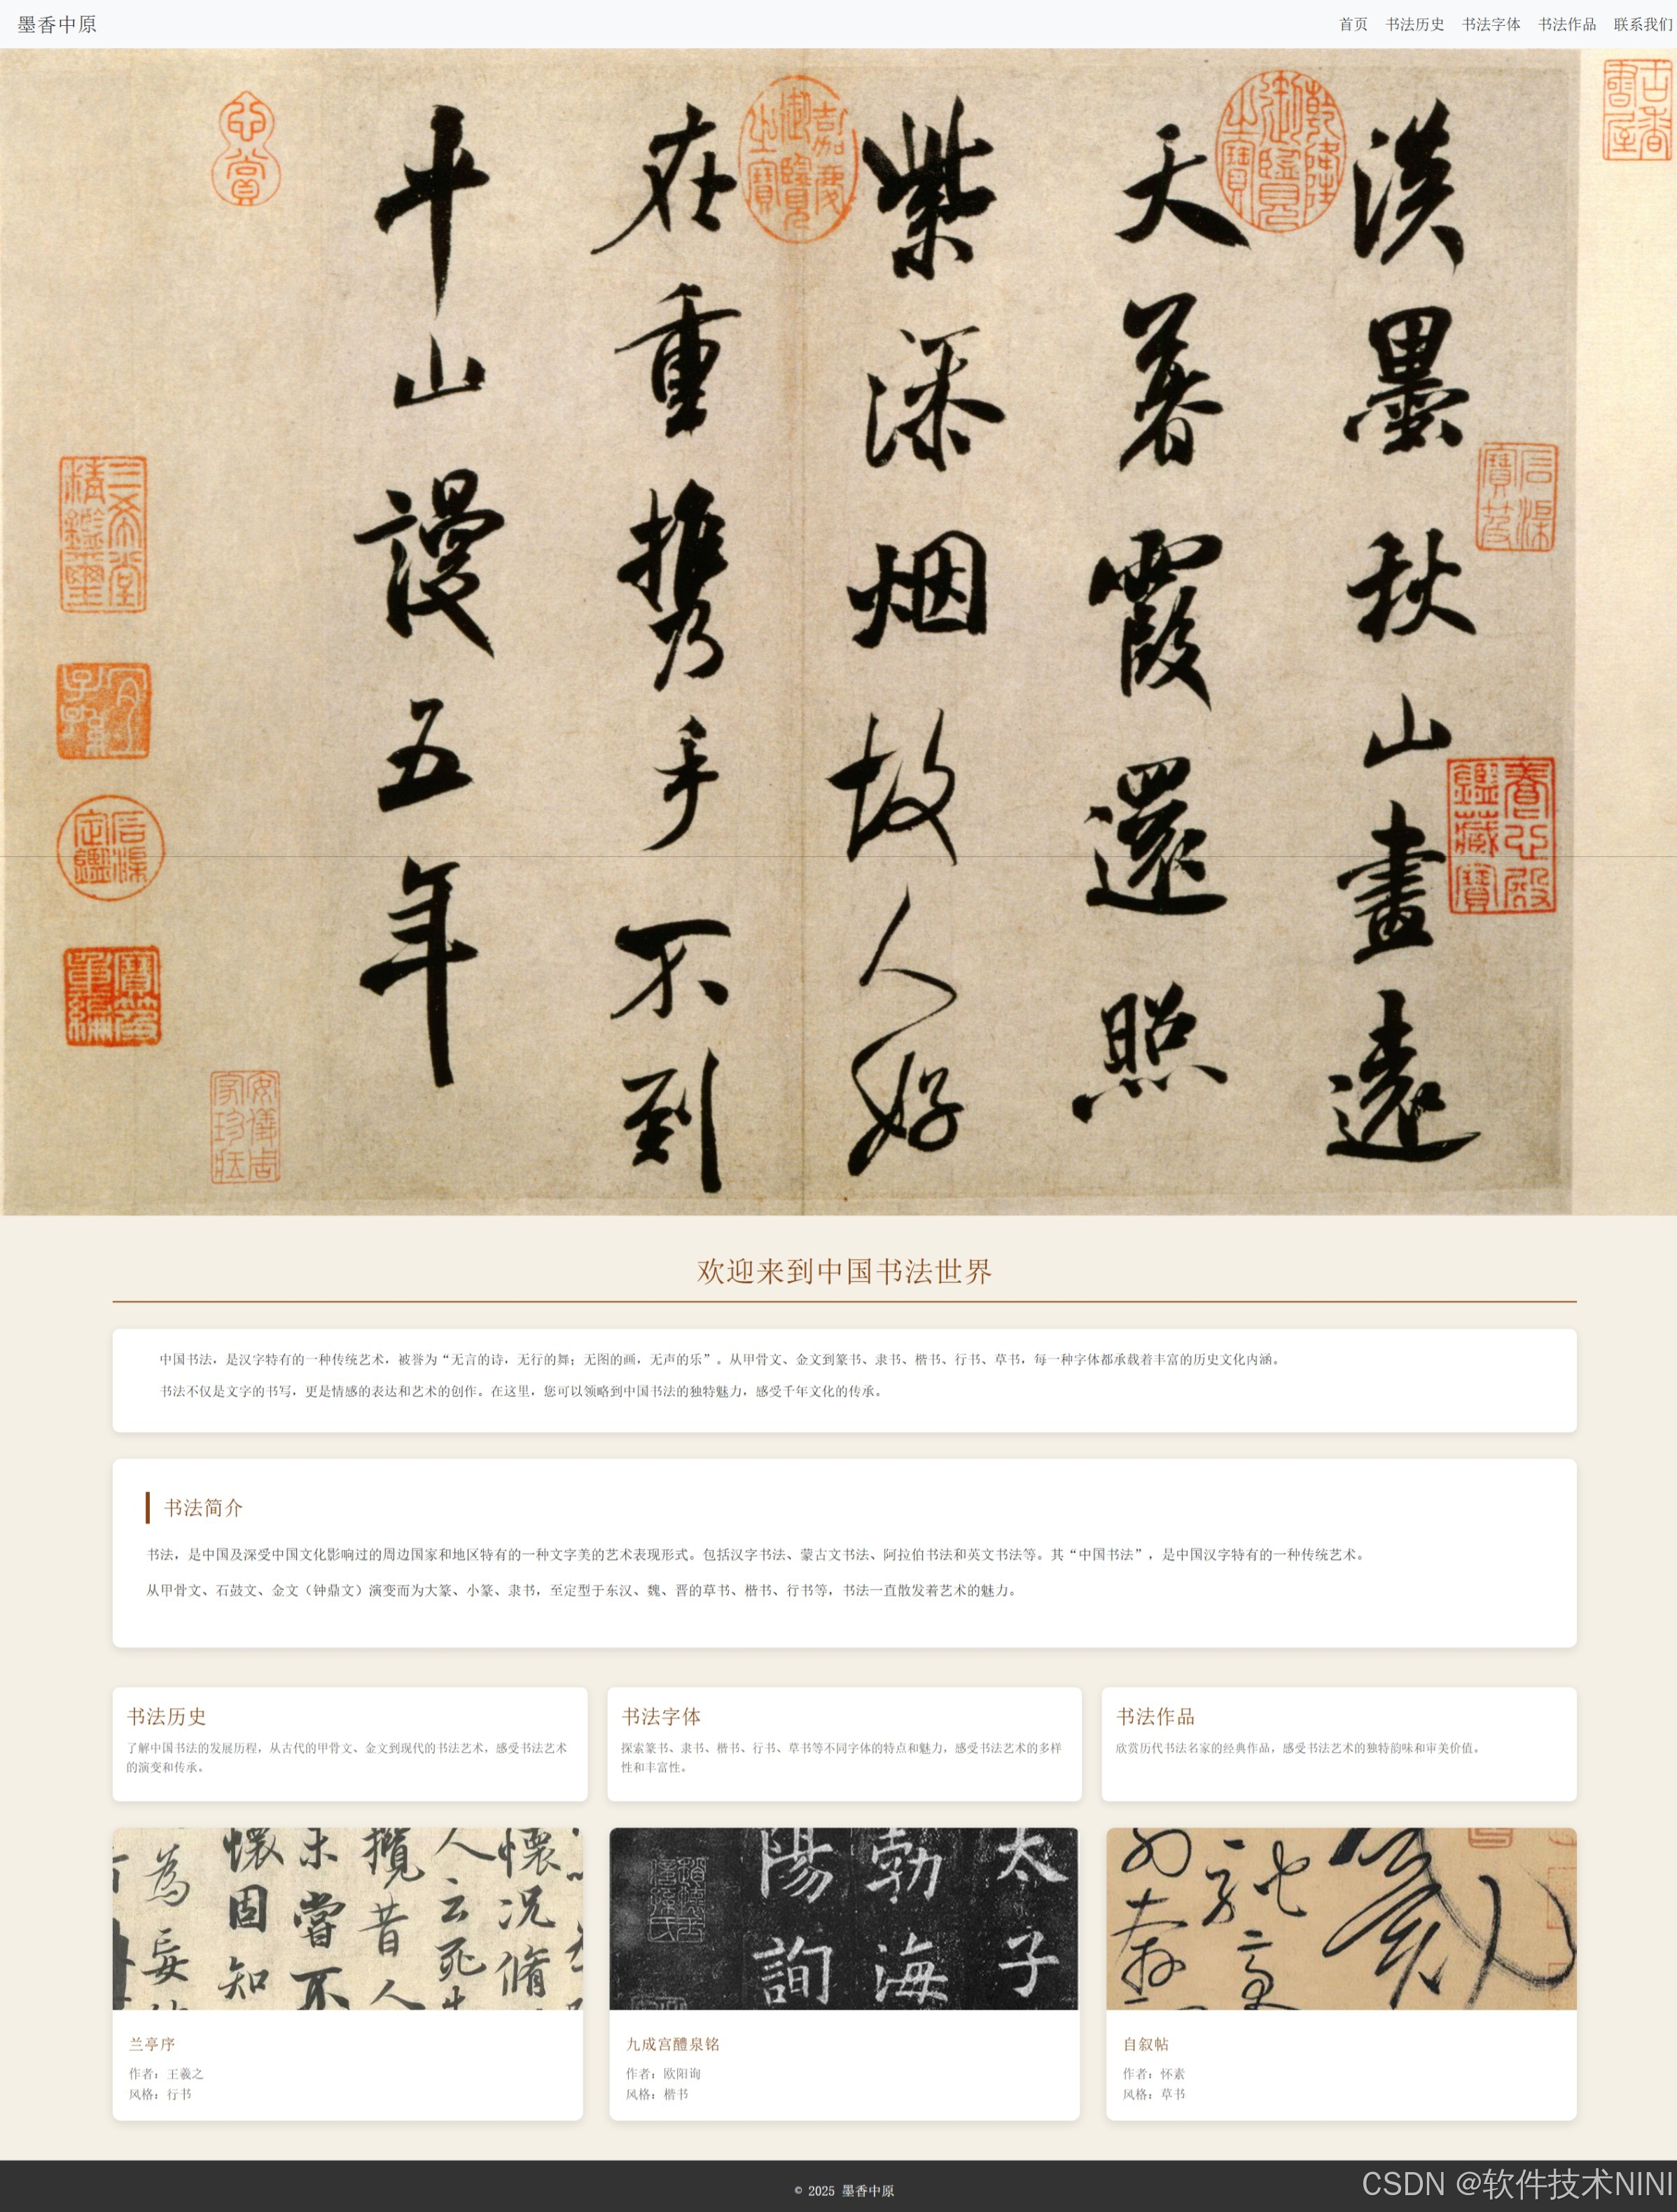 墨香中原
首页 书法历史 书法字体 书法作品 联系我们
古香書屋
淡墨秋山畫遠
天暮霞還照
紫添烟故人好
在重携手不到
平山謾五年
乾隆御覽之寶
嘉慶御覽之寶
石渠寶笈
養心殿鑑藏寶
心賞
三希堂精鑑璽
宜子孫
石渠定鑑
寶笈重編
安儀周家珍藏
欢迎来到中国书法世界
中国书法，是汉字特有的一种传统艺术，被誉为“无言的诗，无行的舞；无图的画，无声的乐”。从甲骨文、金文到篆书、隶书、楷书、行书、草书，每一种字体都承载着丰富的历史文化内涵。
书法不仅是文字的书写，更是情感的表达和艺术的创作。在这里，您可以领略到中国书法的独特魅力，感受千年文化的传承。
书法简介
书法，是中国及深受中国文化影响过的周边国家和地区特有的一种文字美的艺术表现形式。包括汉字书法、蒙古文书法、阿拉伯书法和英文书法等。其“中国书法”，是中国汉字特有的一种传统艺术。
从甲骨文、石鼓文、金文（钟鼎文）演变而为大篆、小篆、隶书，至定型于东汉、魏、晋的草书、楷书、行书等，书法一直散发着艺术的魅力。
书法历史
了解中国书法的发展历程，从古代的甲骨文、金文到现代的书法艺术，感受书法艺术
的演变和传承。
书法字体
探索篆书、隶书、楷书、行书、草书等不同字体的特点和魅力，感受书法艺术的多样
性和丰富性。
书法作品
欣赏历代书法名家的经典作品，感受书法艺术的独特韵味和审美价值。
懷況脩
人云死生
攬昔人
未嘗不
懷固知
為妄
兰亭序
作者：王羲之
风格：行书
太子
勃海
陽詢
九成宫醴泉铭
作者：欧阳询
风格：楷书
自叙帖
作者：怀素
风格：草书
© 2025 墨香中原
CSDN @软件技术NINI